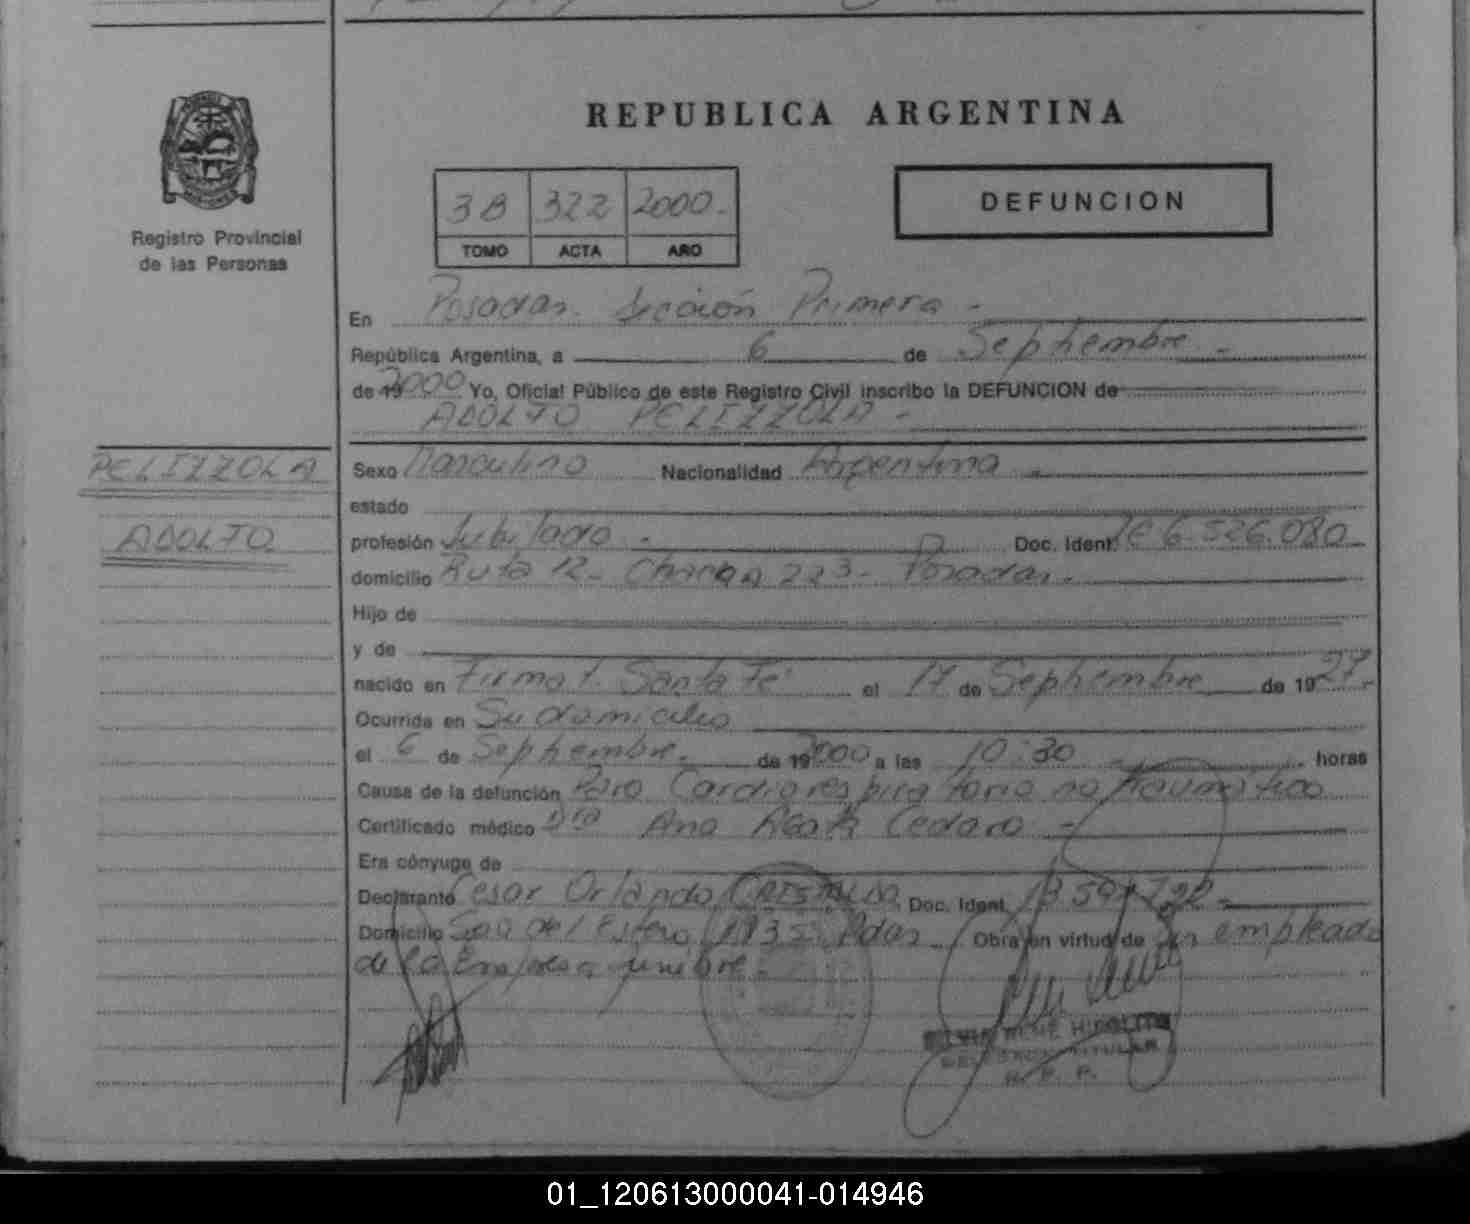 REPUBLICA ARGENTINA
Registro Provincial
de las Personas
3B 322 2000.-
TOMO ACTA AÑO
DEFUNCION
En Posadas. Sección Primera -
República Argentina, a 6 de Septiembre -
de 19 2000 Yo, Oficial Público de este Registro Civil inscribo la DEFUNCION de
ADOLFO PELIZZOLA -
PELIZZOLA
ADOLFO
Sexo Masculino Nacionalidad Argentina -
estado
profesión Jubilado - Doc. Ident. LE 6.526.080
domicilio Ruta 12 - Chacra 223 - Posadas.
Hijo de
y de
nacido en Firmat. Santa Fé el 17 de Septiembre de 1927.-
Ocurrida en Su domicilio
el 6 de Septiembre. de 19 2000 a las 10:30 horas
Causa de la defunción Paro Cardiorespiratorio no traumático
Certificado médico Dra Ana Cedaro -
Era cónyuge de
Declarante Cesar Orlando CRISTALDO Doc. Ident.
Domicilio Sgo del Estero 1935 Pdas Obra en virtud de ser empleado
de la Empresa funebre.
RENE HIPOLITO
TITULAR
R. P. P.
01_120613000041-014946